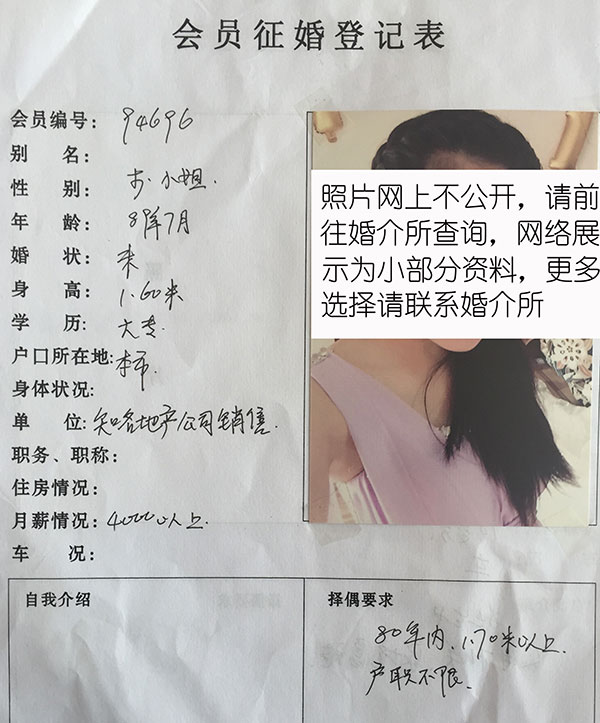 会员征婚登记表
会员编号: 94696
别 名:
性 别: 小姐.
年 龄: 81年7月
婚 状: 未
身 高: 1.60米
学 历: 大专.
户口所在地: 本市.
身体状况:
单 位: 知名地产公司销售.
职务、职称:
住房情况:
月薪情况: 4000以上.
车 况:
照片网上不公开，请前
往婚介所查询，网络展
示为小部分资料，更多
选择请联系婚介所
自我介绍
择偶要求
80年内、1.70米以上.
户职不限.